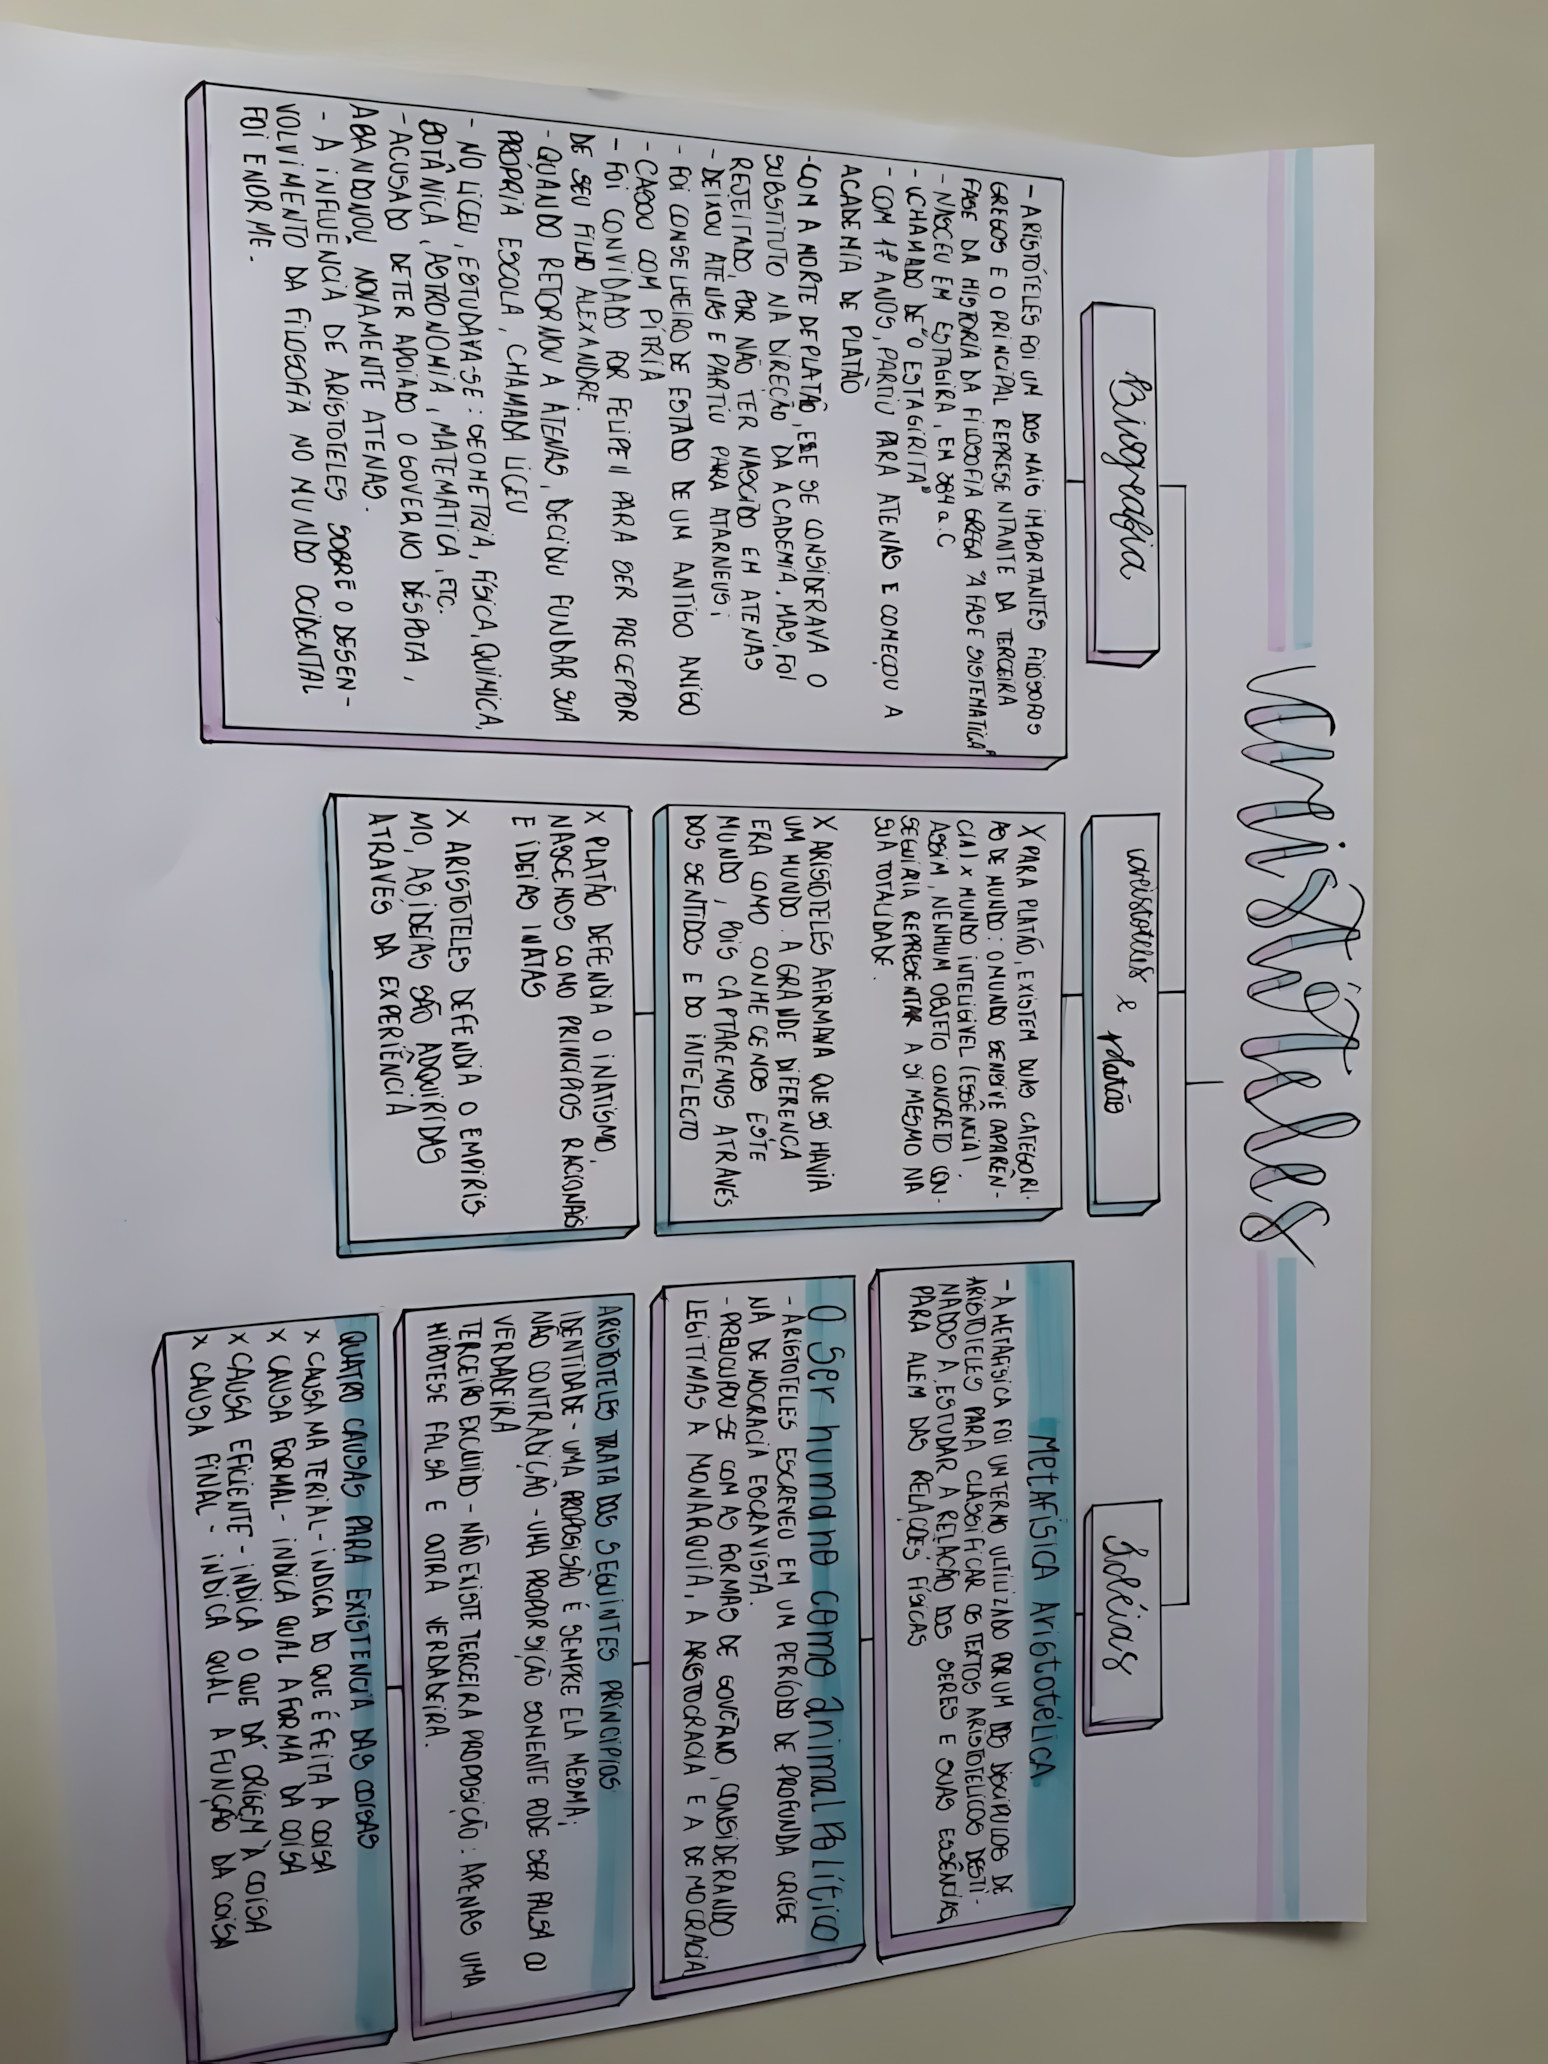 Aristóteles
Biografia
- ARISTÓTELES FOI UM DOS MAIS IMPORTANTES FILÓSOFOS
GREGOS E O PRINCIPAL REPRESENTANTE DA TERCEIRA
FASE DA HISTORIA DA FILOSOFIA GREGA "A FASE SISTEMATICA"
- NASCEU EM ESTAGIRA, EM 384 a.C
- CHAMADO DE "O ESTAGIRITA"
- COM 17 ANOS, PARTIU PARA ATENAS E COMEÇOU A
ACADEMIA DE PLATÃO
- COM A MORTE DE PLATÃO, ELE SE CONSIDERAVA O
SUBSTITUTO NA DIREÇÃO DA ACADEMIA, MAS, FOI
REJEITADO, POR NÃO TER NASCIDO EM ATENAS
- DEIXOU ATENAS E PARTIU PARA ATARNEUS;
- FOI CONSELHEIRO DE ESTADO DE UM ANTIGO AMIGO
- CASOU COM PÍTRIA
- FOI CONVIDADO POR FELIPE II PARA SER PRECEPTOR
DE SEU FILHO ALEXANDRE.
- QUANDO RETORNOU A ATENAS, DECIDIU FUNDAR SUA
PRÓPRIA ESCOLA, CHAMADA LICEU
- NO LICEU, ESTUDAVA-SE: GEOMETRIA, FÍSICA, QUIMICA,
BOTÂNICA, ASTRONOMIA, MATEMATICA, ETC.
- ACUSADO DE TER APOIADO O GOVERNO DÉSPOTA,
ABANDONOU NOVAMENTE ATENAS.
- A INFLUENCIA DE ARISTOTELES SOBRE O DESEN-
VOLVIMENTO DA FILOSOFIA NO MUNDO OCIDENTAL
FOI ENORME.
aristoteles e platão
X PARA PLATÃO, EXISTEM DUAS CATEGORI-
AS DE MUNDO: O MUNDO SENSIVE (APARÊN-
CIA) X MUNDO INTELIGIVEL (ESSÊNCIA).
ASSIM, NENHUM OBJETO CONCRETO CON-
SEGUIRIA REPRESENTAR A SI MESMO NA
SUA TOTALIDADE.
X ARISTOTELES AFIRMAVA QUE SÓ HAVIA
UM MUNDO. A GRANDE DIFERENCA
ERA COMO CONHECEMOS ESTE
MUNDO, POIS CAPTAREMOS ATRAVÉS
DOS SENTIDOS E DO INTELECTO
X PLATÃO DEFENDIA O INATISMO,
NASCEMOS COMO PRINCIPIOS RACIONAIS
E IDEIAS INATAS
X ARISTOTELES DEFENDIA O EMPIRIS
MO, AS IDEIAS SÃO ADQUIRIDAS
ATRAVES DA EXPERIÊNCIA
Idéias
Metafísica Aristotélica
- A METAFISICA FOI UM TERMO ULTILIZADO POR UM DOS DISCIPULOS DE
ARISTOTELES PARA CLASSIFICAR OS TEXTOS ARISTOTELICOS DESTI-
NADOS A ESTUDAR A RELAÇÃO DOS SERES E SUAS ESSÊNCIAS,
PARA ALEM DAS RELAÇÕES FÍSICAS
O ser humano como animal Político
- ARISTOTELES ESCREVEU EM UM PERÍODO DE PROFUNDA CRISE
NA DEMOCRACIA ESCRAVISTA.
- PREOCUPOU-SE COM AS FORMAS DE GOVERNO, CONSIDERANDO
LEGITIMAS A MONARQUIA, A ARISTOCRACIA E A DEMOCRACIA
ARISTOTELES TRATA DOS SEGUINTES PRINCIPIOS
IDENTIDADE - UMA PROPOSISÃO É SEMPRE ELA MESMA;
NÃO CONTRADIÇÃO - UMA PROPORSIÇÃO SOMENTE PODE SER FALSA OU
VERDADEIRA
TERCEIRO EXCLUIDO - NÃO EXISTE TERCEIRA PROPOSIÇÃO: APENAS UMA
HIPOTESE FALSA E OUTRA VERDADEIRA.
QUATRO CAUSAS PARA EXISTENCIA DAS COISAS
X CAUSA MATERIAL - INDICA DO QUE É FEITA A COISA
X CAUSA FORMAL - INDICA QUAL A FORMA DA COISA
X CAUSA EFICIENTE - INDICA O QUE DÁ ORIGEM À COISA
X CAUSA FINAL - INDICA QUAL A FUNÇÃO DA COISA